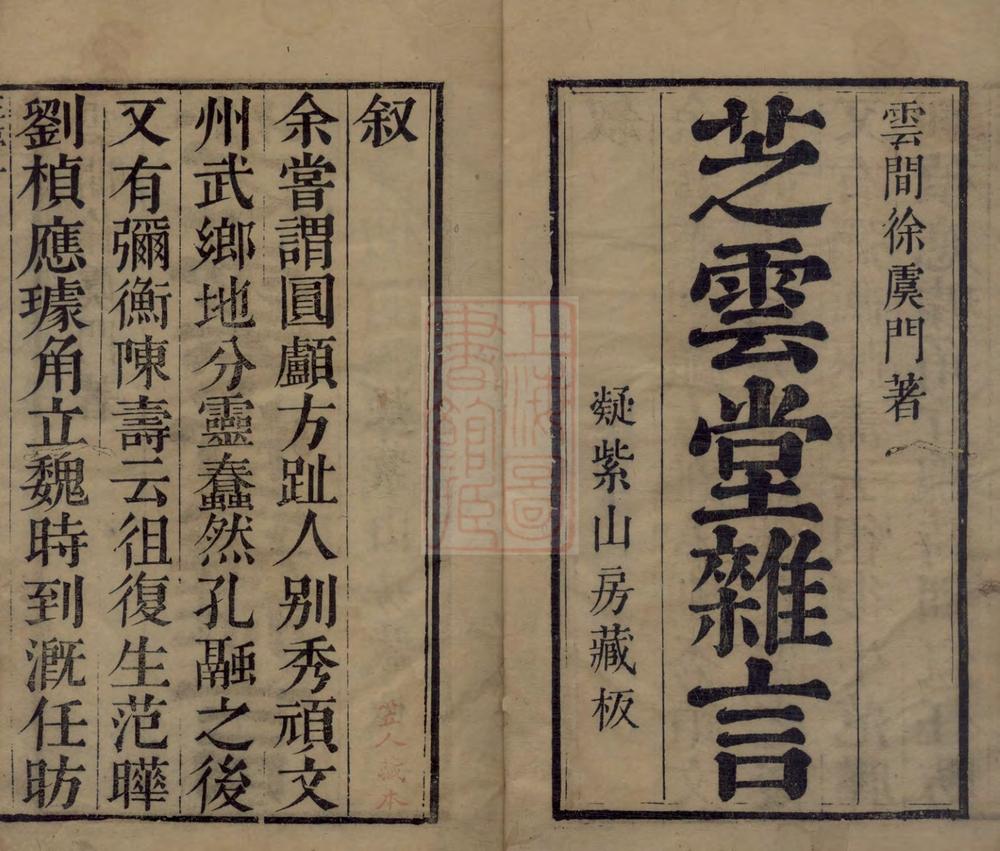 雲間徐虞門著
芝雲堂雜言
凝紫山房藏板
叙
余嘗謂圓顱方趾人别秀頑文
州武鄉地分靈蠢然孔融之後
又有彌衡陳壽云徂復生范曄
劉楨應璩角立魏時到溉任昉
上海圖書館藏
笠人藏本